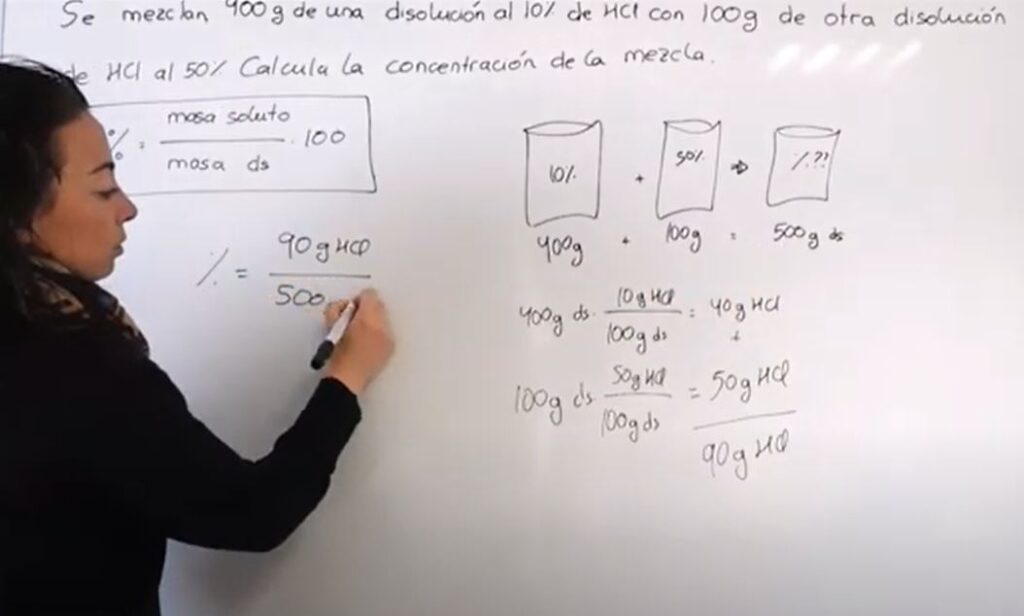 Se mezclan 400g de una disolución al 10% de HCl con 100g de otra disolución
de HCl al 50% Calcula la concentración de la mezcla.
% = masa soluto / masa ds · 100
10% + 50% ⇒ %??
400g + 100g = 500g ds
% = 90g HCl / 500
400g ds · 10g HCl / 100g ds = 40g HCl
+
100g ds 50g HCl / 100g ds = 50g HCl
90g HCl